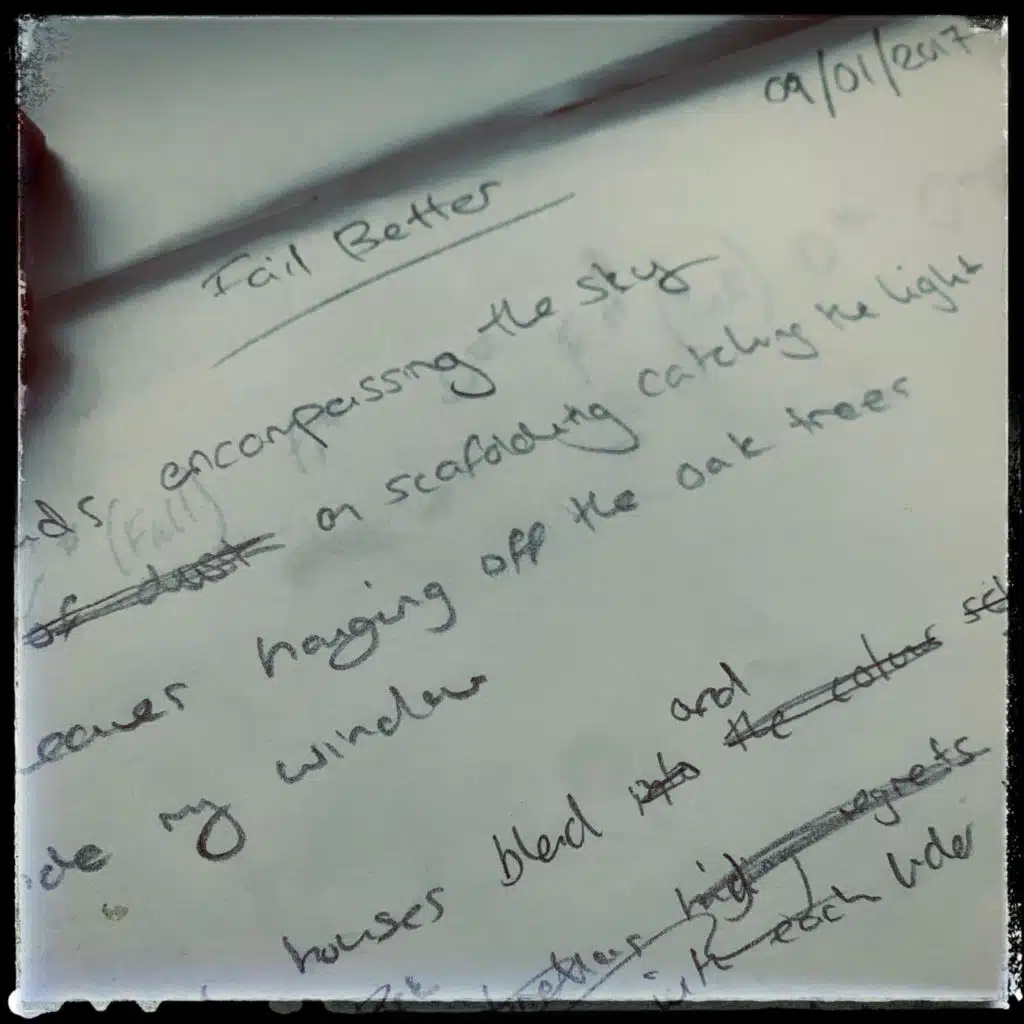 09/01/2017
Fail Better
nds encompassing the sky
(Fall)
of dust on scafolding catching the light
eaves hanging off the oak trees
ide my window
and
houses blend into the colour
hid regrets
with each